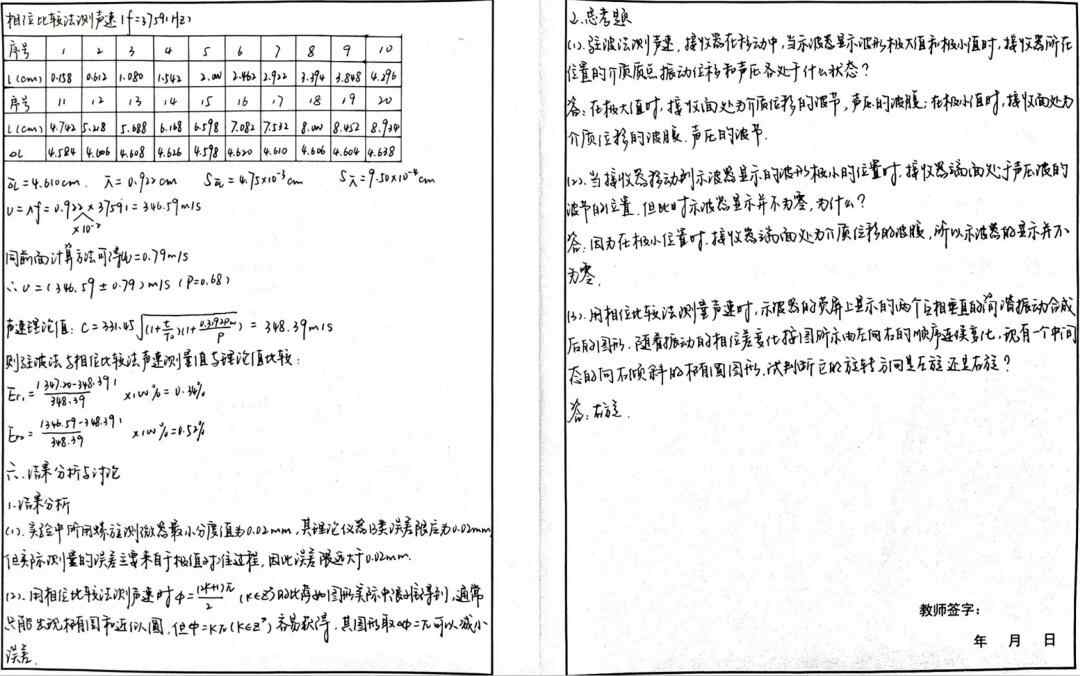 相位比较法测声速 (f=37591Hz)
序号 1 2 3 4 5 6 7 8 9 10
L(cm) 0.158 0.612 1.080 1.542 2.00 2.462 2.922 3.394 3.848 4.296
序号 11 12 13 14 15 16 17 18 19 20
L(cm) 4.742 5.218 5.688 6.168 6.598 7.082 7.532 8.00 8.452 8.934
ΔL 4.584 4.606 4.608 4.626 4.598 4.620 4.610 4.606 4.604 4.638
ΔL=4.610cm. λ=0.922cm S=4.75×10⁻³cm Sλ=9.50×10⁻⁴cm
υ=λf=0.922×37591=346.59m/s
×10⁻²
同前面计算方法可得u=0.79m/s
∴υ=(346.59±0.79)m/s (P=0.68)
声速理论值: C=331.45√(1+t/T₀)(1+0.3192Pw/P) = 348.39m/s
则驻波法与相位比较法声速测量值与理论值比较:
Er₁=|347.20-348.39|/348.39 ×100%=0.34%
Er₂=|346.59-348.39|/348.39 ×100%=0.52%
六.结果分析与讨论
1.结果分析
(1).实验中所用螺旋测微器最小分度值为0.02mm,其理论仪器B类误差限应为0.02mm
但实际测量的误差主要来自于极值对准过程,因此误差限远大于0.02mm.
(2).用相位比较法测声速时φ=(2k+1)π/2 (k∈Z)的比萨如图形实际中很难得到,通常
只能出现椭圆和近似圆,但φ=kπ(k∈Z)容易获得.其图形取Δφ=π可以减小
误差.
2.思考题
(1).驻波法测声速,接收器在移动中,当示波器显示波形极大值和极小值时,接收器所在
位置的介质质点振动位移和声压各处于什么状态?
答:在极大值时,接收面处为介质位移的波节,声压的波腹;在极小值时,接收面处为
介质位移的波腹.声压的波节.
(2).当接收器移动到示波器显示的波形极小的位置时.接收器端面处于声压波的
波节的位置.但此时示波器显示并不为零,为什么?
答:因为在极小位置时.接收器端面处为介质位移的波腹,所以示波器的显示并不
为零.
(3).用相位比较法测量声速时,示波器的荧屏上显示的两个互相垂直的简谐振动合成
后的图形.随着振动的相位差变化按图所示由左向右的顺序连续变化,现有一个中间
态的向右倾斜的椭圆图形.试判断它的旋转方向是左旋还是右旋?
答:右旋.
教师签字:
年 月 日